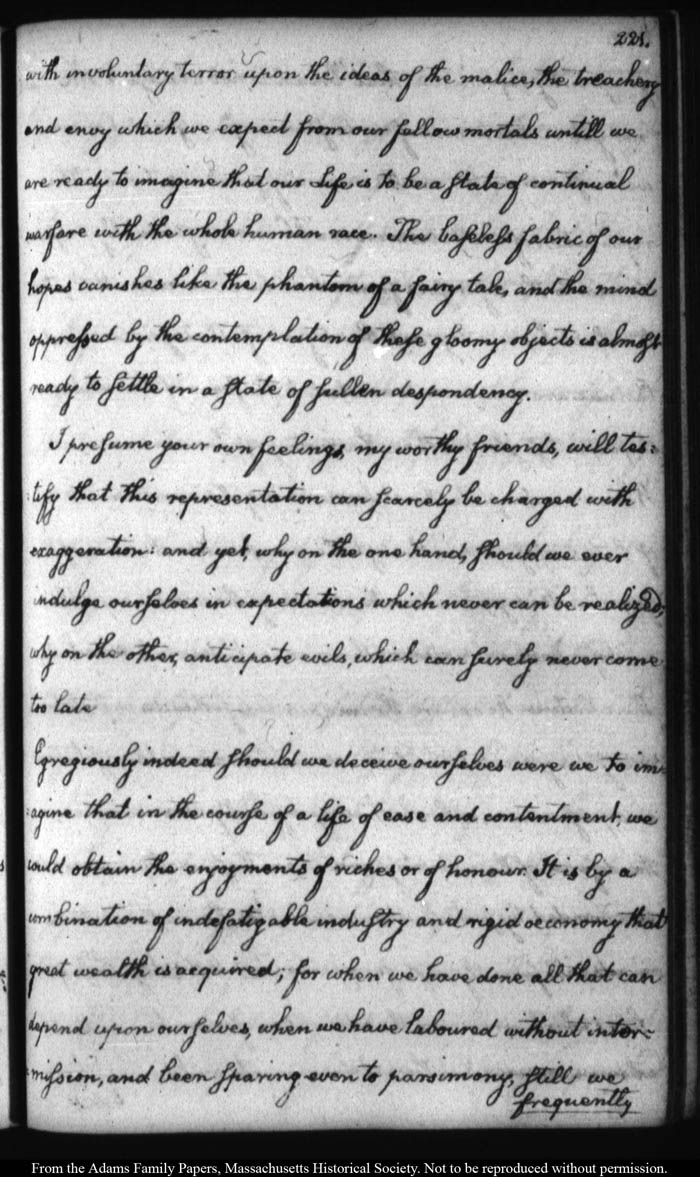 221.
with involuntary terror upon the ideas of the malice, the treachery
and envy which we expect from our fellow mortals untill we
are ready to imagine that our Life is to be a state of continual
warfare with the whole human race. The baseless fabric of our
hopes vanishes like the phantom of a fairy tale, and the mind
oppressed by the contemplation of these gloomy objects is almost
ready to settle in a state of sullen despondency.
I presume your own feelings, my worthy friends, will tes:
:tify that this representation can scarcely be charged with
exaggeration: and yet, why on the one hand, should we ever
indulge ourselves in expectations which never can be realized;
why on the other, anticipate evils, which can surely never come
too late
Egregiously indeed should we deceive ourselves were we to im:
:agine that in the course of a life of ease and contentment, we
could obtain the enjoyments of riches or of honour. It is by a
combination of indefatigable industry and rigid oeconomy that
great wealth is acquired; for when we have done all that can
depend upon ourselves, when we have laboured without inter:
:mission, and been sparing even to parsimony, still we
frequently
From the Adams Family Papers, Massachusetts Historical Society. Not to be reproduced without permission.